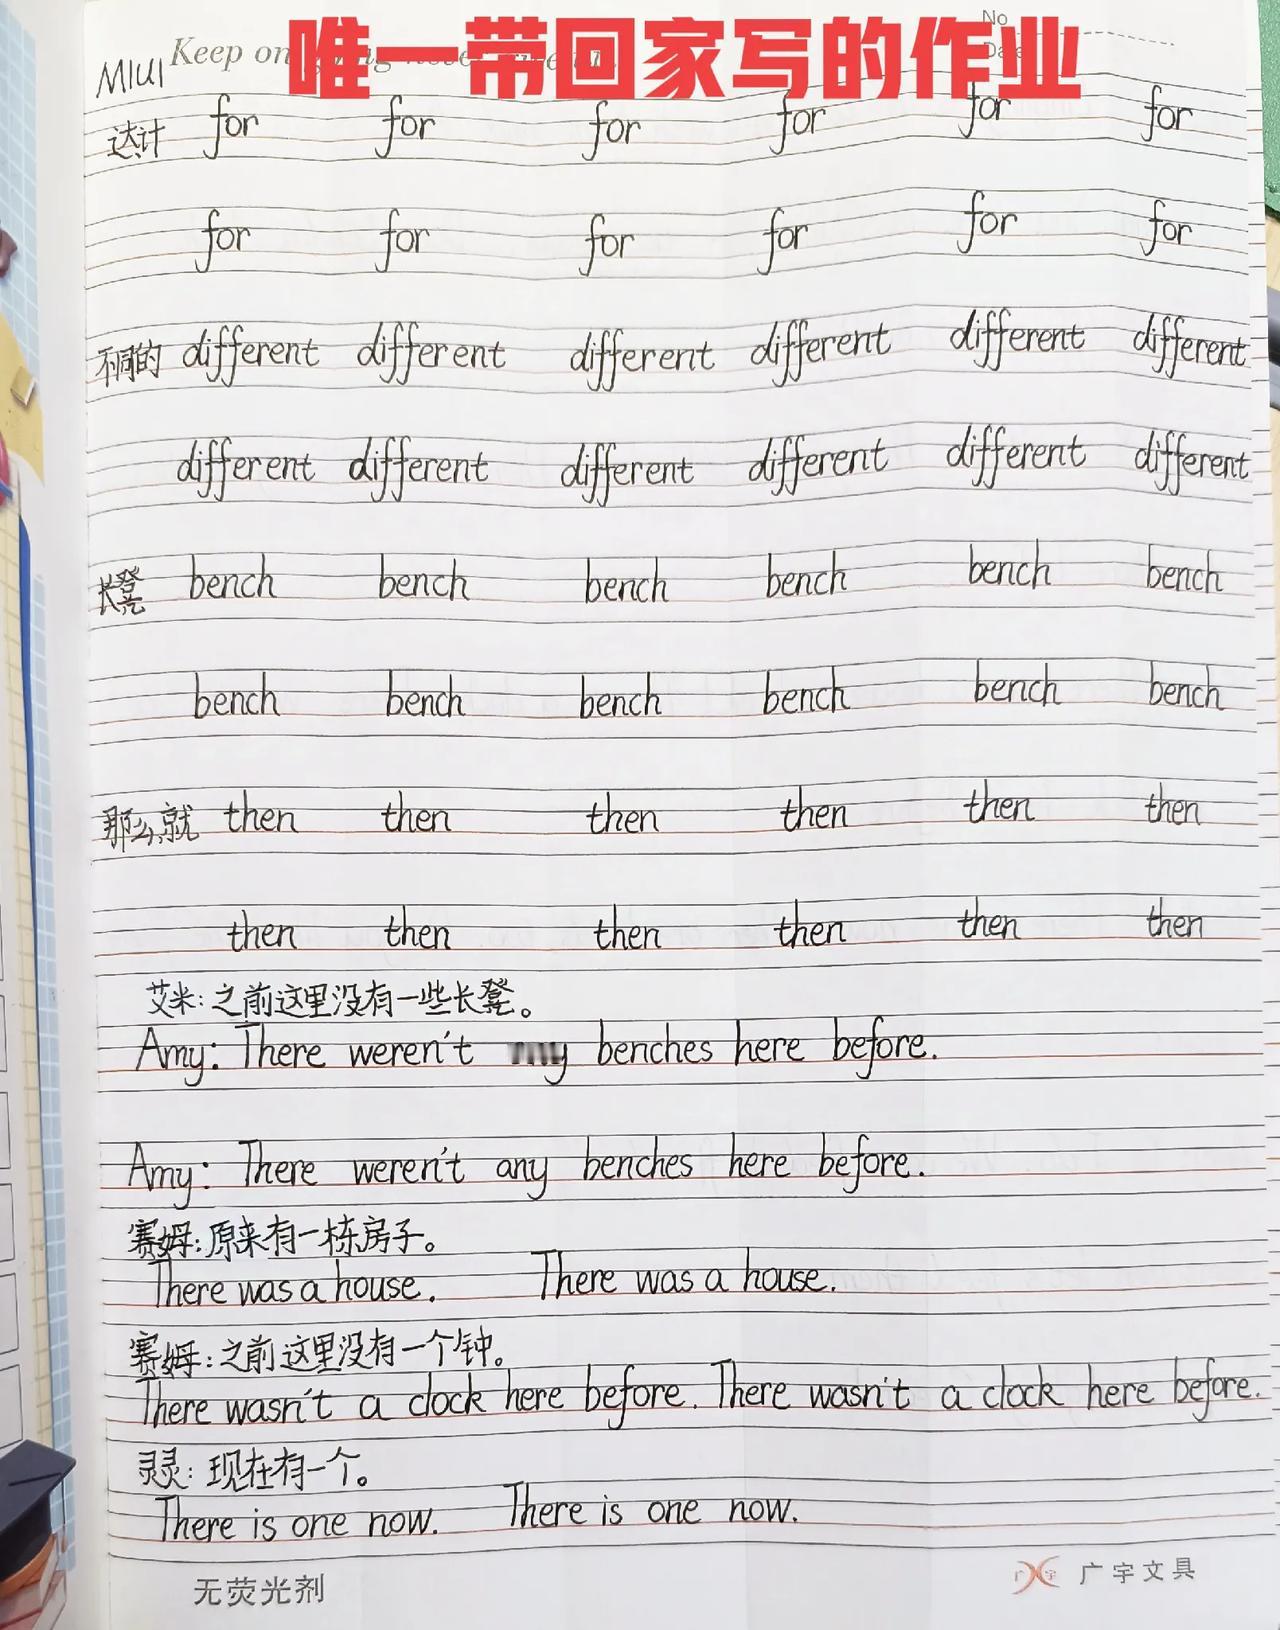 唯一带回家写的作业
No
Keep on
MIUI
达计 for for for for for for
for for for for for for
不同的 different different different different different different
different different different different different different
长凳 bench bench bench bench bench bench
bench bench bench bench bench bench
那么,就 then then then then then then
then then then then then then
艾米:之前这里没有一些长凳。
Amy: There weren't benches here before.
Amy: There weren't any benches here before.
赛姆:原来有一栋房子。
There was a house. There was a house.
赛姆:之前这里没有一个钟。
There wasn't a clock here before. There wasn't a clock here before.
灵灵:现在有一个。
There is one now. There is one now.
无荧光剂
广宇文具